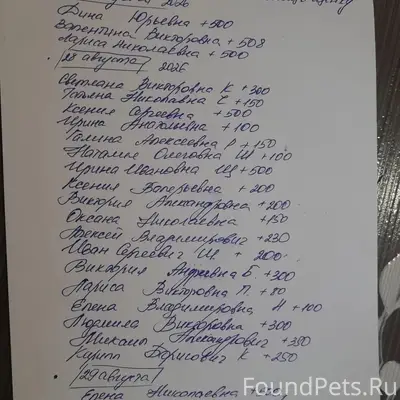 2026
Дина Юрьевна +500
Валентина Викторовна +508
Лариса Николаевна +500
28 августа 2026
Светлана Викторовна К +300
Татьяна Николаевна С +150
Ксения Сергеевна +500
Ирина Анатольевна +100
Галина Алексеевна Р +150
Наталия Олеговна Ш +100
Ирина Ивановна Щ +500
Ксения Валерьевна +200
Виктория Александровна +200
Оксана Николаевна +150
Алексей Владимирович +230
Иван Сергеевич Щ + 200
Виктория Андреевна Б. +300
Лариса Викторовна П. +80
Елена Владимировна Н +100
Людмила Викторовна +300
Михаил Александрович +350
Кирилл Борисович К +250
29 августа
Елена Николаевна
FoundPets.Ru